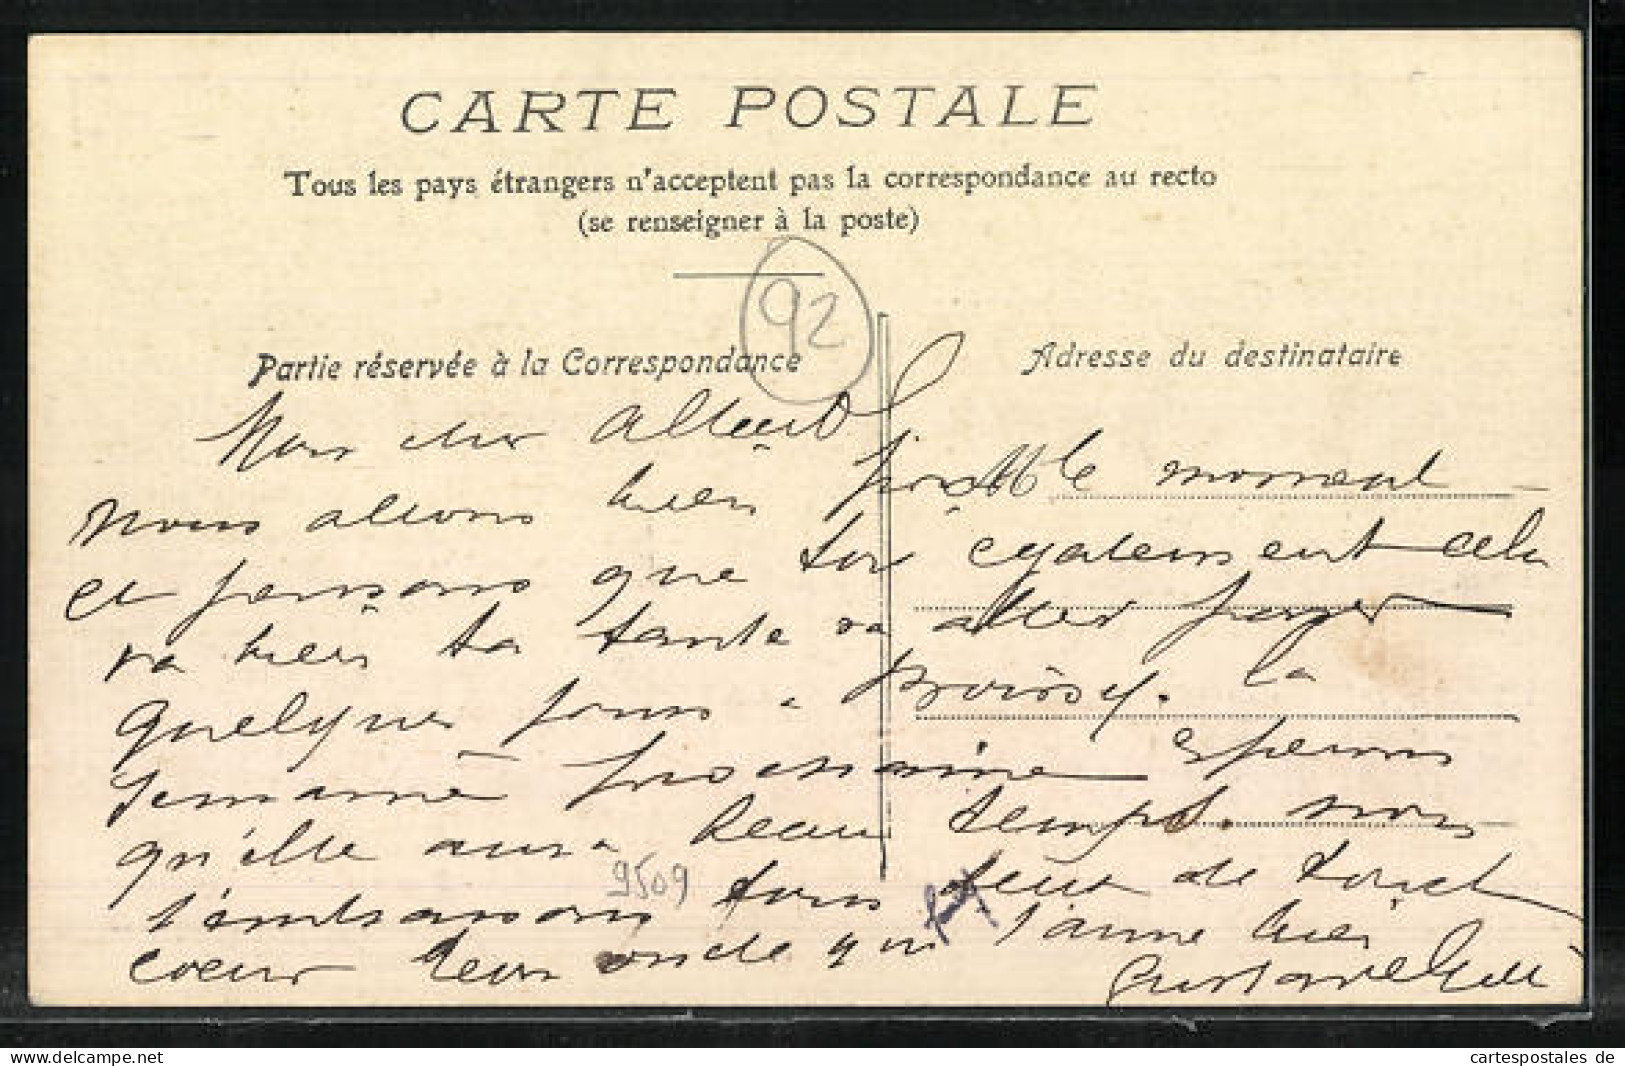 CARTE POSTALE
Tous les pays étrangers n'acceptent pas la correspondance au recto
(se renseigner à la poste)
92
Partie réservée à la Correspondance
Adresse du destinataire
Mon cher Albert
Nous allons bien possible moment
et pensons que toi egalement cela
va bien ta tante va aller passer
quelques jours a Broissy. la
semaine prochaine esperons
qu'elle aura beau temps. nous
t'embrassons tous deux de tout
coeur ton oncle qui t'aime bien
Gustave
9509
cartespostales de